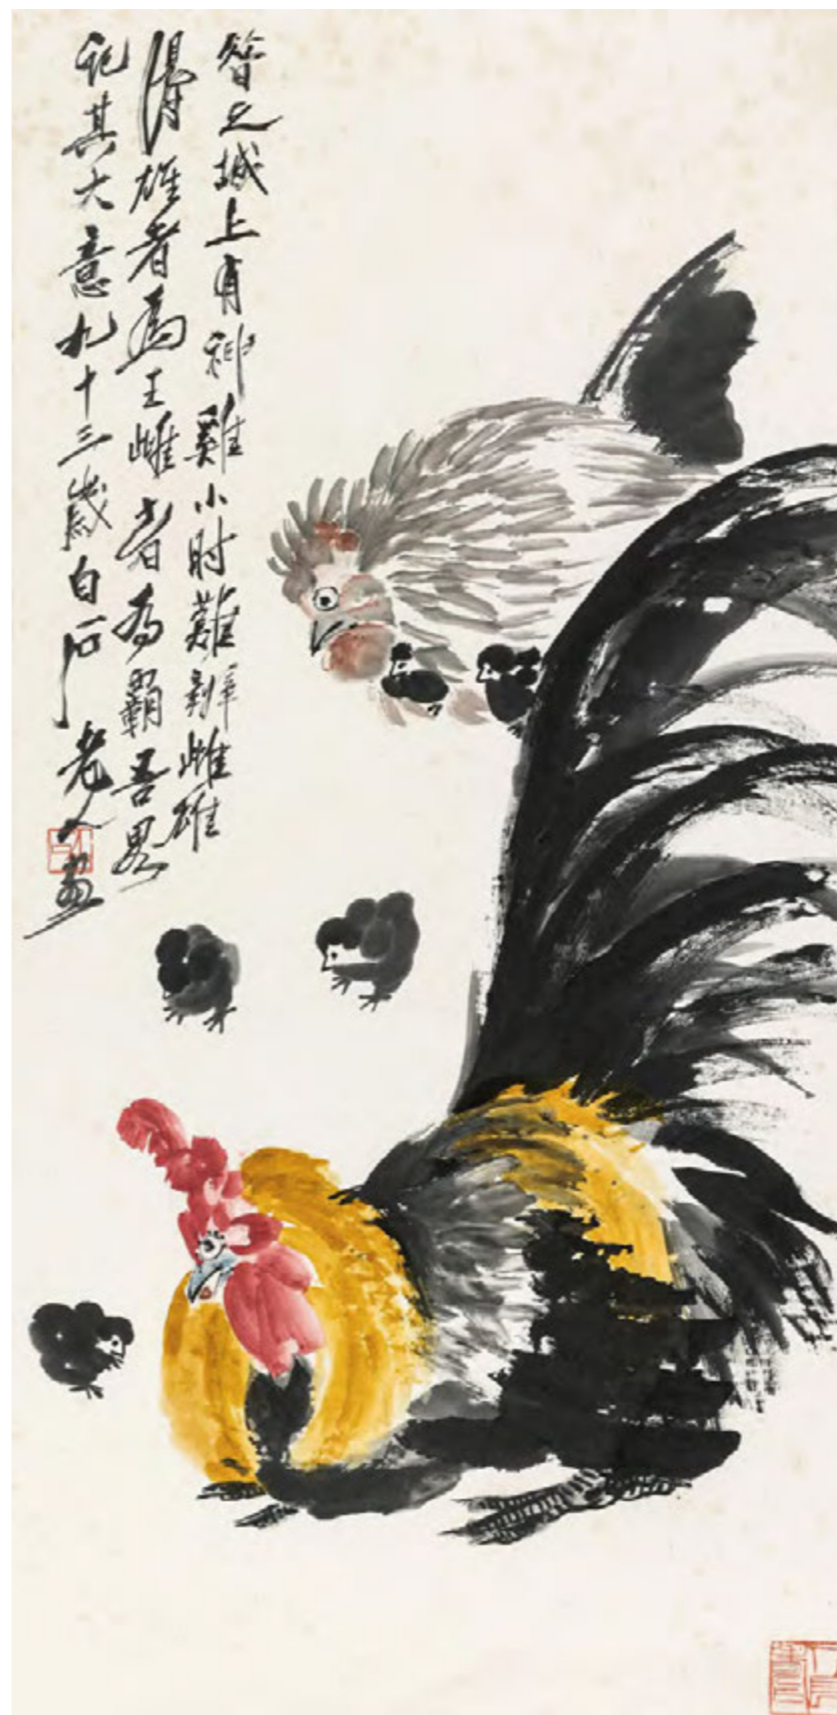 之城上有神雞小时難辨雌雄
得雄者為王雌者為霸吾畧
記其大意九十三歲白石老人畫
人長壽